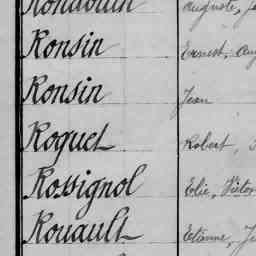 Ronsin Ernest,
Ronsin Jean
Roquet Robert,
Rossignol Elie, Victor
Rouault Etienne,